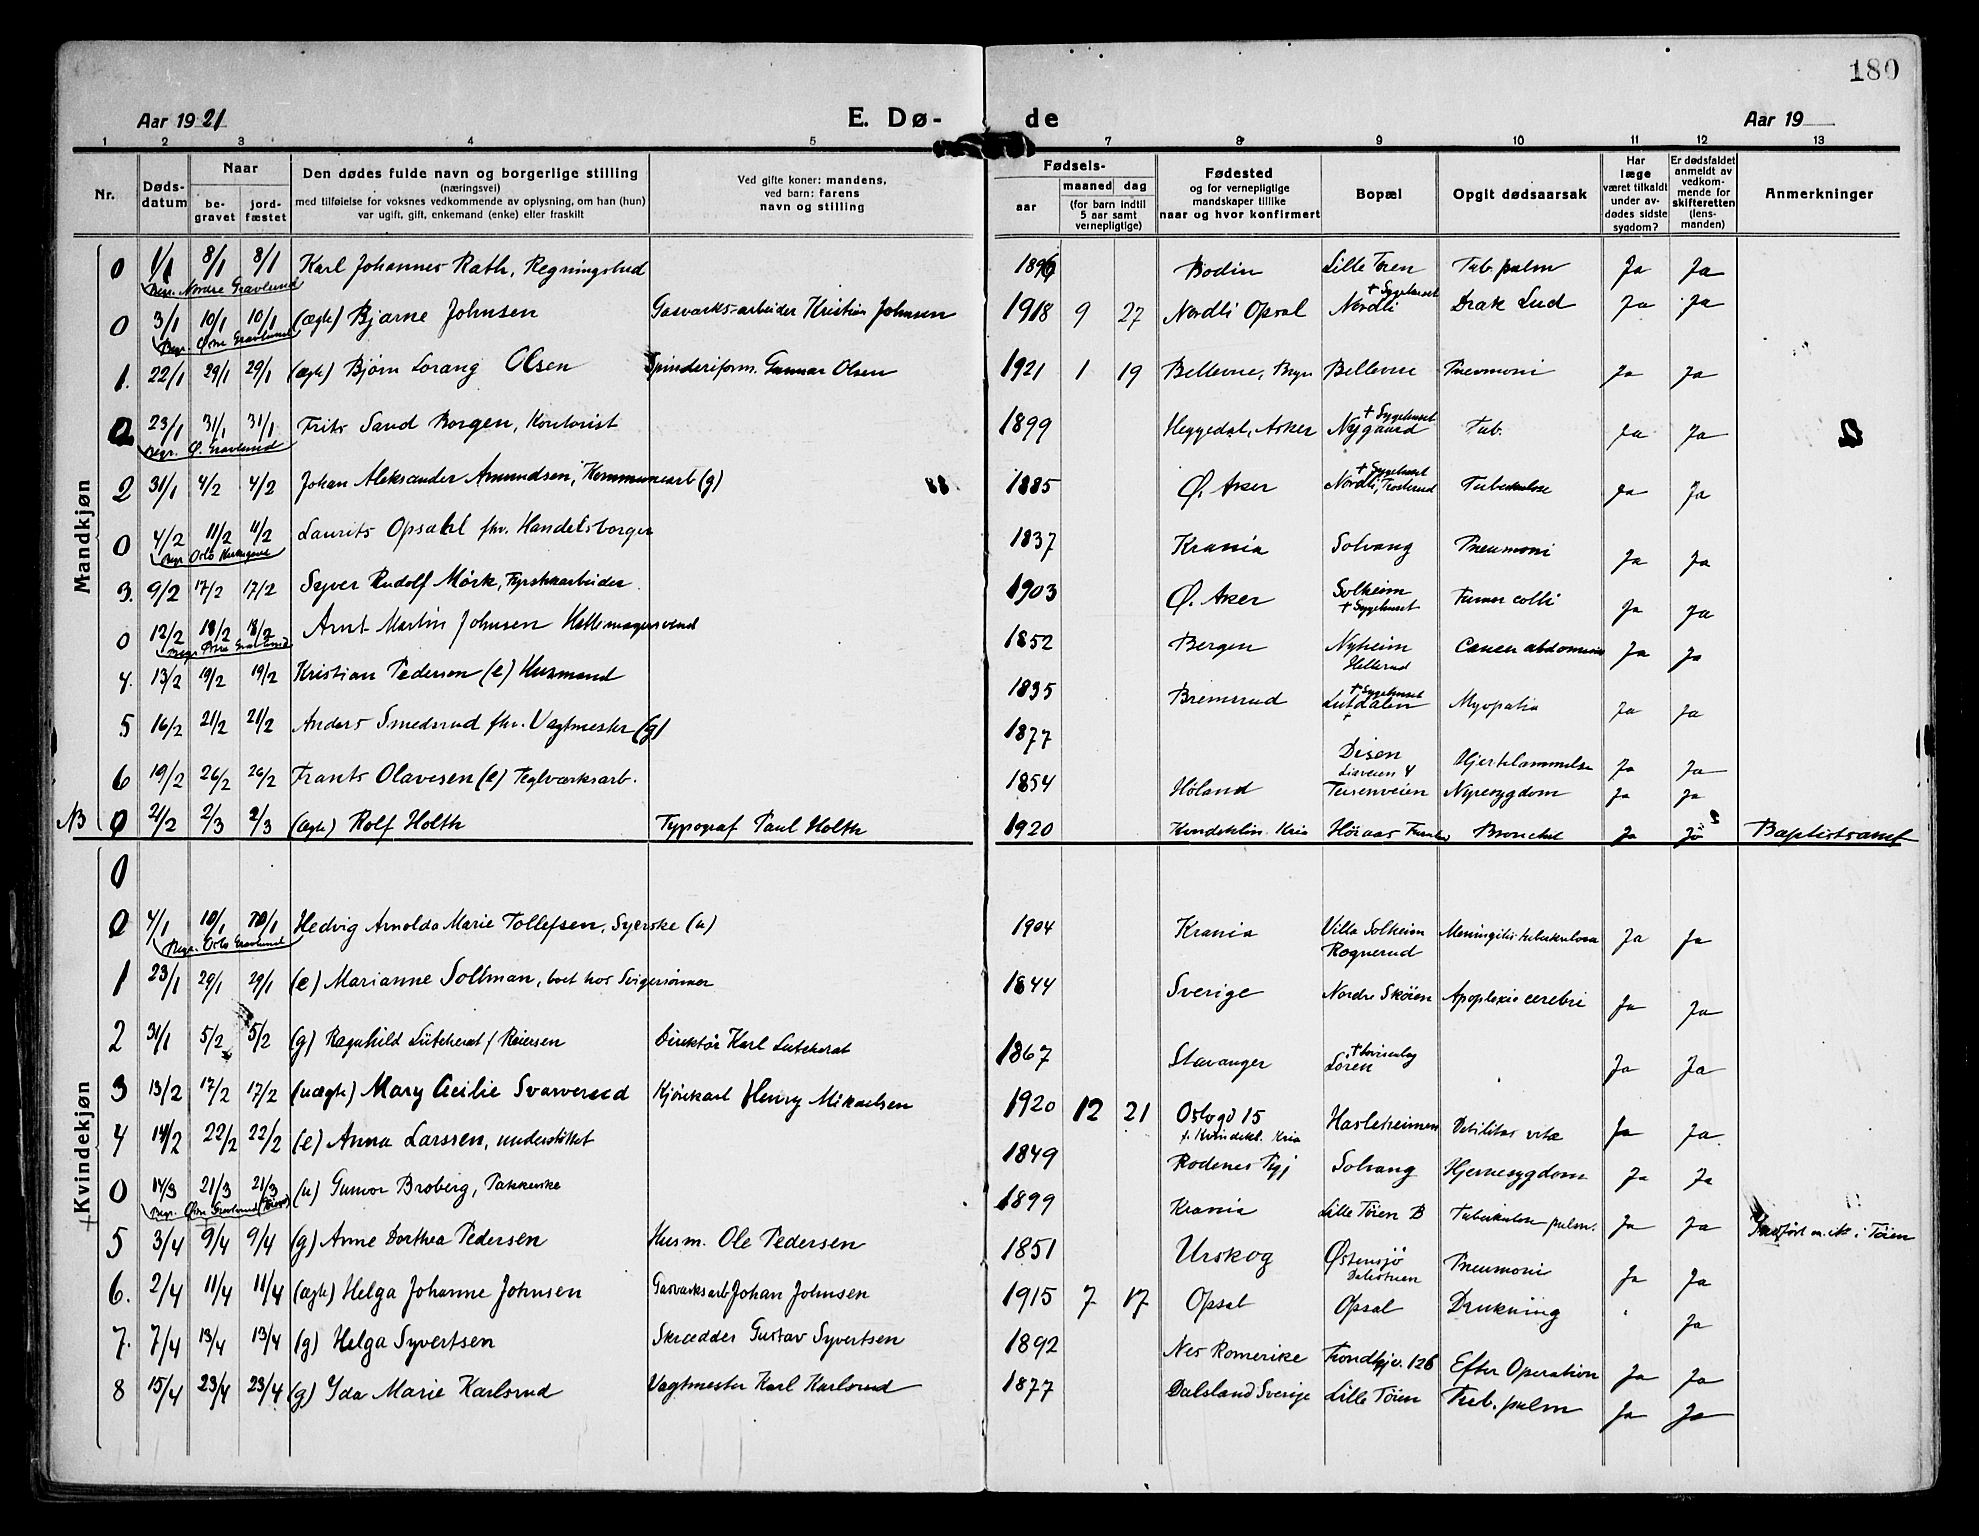 180
Aar 1921
E. Dø-
de
Aar 19
1 2 3 4 5 7 8 9 10 11 12 13
Nr.
Døds-
datum
Naar
be-
gravet
jord-
fæstet
Den dødes fulde navn og borgerlige stilling
(næringsvei)
med tilføielse for voksnes vedkommende av oplysning, om han (hun)
var ugift, gift, enkemand (enke) eller fraskilt
Ved gifte koner: mandens,
ved barn: farens
navn og stilling
Fødsels-
aar
maaned dag
(for barn indtil
5 aar samt
vernepligtige)
Fødested
og for vernepligtige
mandskaper tillike
naar og hvor konfirmert
Bopæl
Opgit dødsaarsak
Har
læge
været tilkaldt
under av-
dødes sidste
sygdom?
Er dødsfaldet
anmeldt av
vedkom-
mende for
skifteretten
(lens-
manden)
Anmerkninger
Mandkjøn
0 1/1 8/1 8/1 Karl Johannes Rath, 1896 Bodin Lille Tøen Tub. pulm Ja Ja
Begr. Nordre Gravlund
0 3/1 10/1 10/1 (ægte) Bjarne Johnsen Gasværks-arbeider Kristian Johnsen 1918 9 27 Nordli Opsal Nordli Ja Ja
+ Sygehuset
Begr. Østre Gravlund
1. 22/1 29/1 29/1 (ægte) Bjørn Lorang Olsen Spinderiform. Gunnar Olsen 1921 1 19 Bellevue, Bryn Bellevue Pneumoni Ja Ja
23/1 31/1 31/1 Frits Sand Borgen, Kontorist 1899 Heggedal, Asker Nygaard Tub. Ja Ja 2
+ Sygehuset
Begr. Ø. Gravlund
2 31/1 4/2 4/2 Johan Aleksander Amundsen, Kommunearb (g) 88 1885 Ø. Aker Nordli, Trosterud Tuberkulose Ja Ja
+ Sygehuset
0 4/2 11/2 11/2 Laurits Opsahl fhv. Handelsborger 1837 Krania Solvang Pneumoni Ja Ja
Begr. Oslo
3. 9/2 17/2 17/2 Syver Rudolf Mørk, 1903 Ø. Aker Solheim Tumor colli Ja Ja
+ Sygehuset
0 12/2 18/2 18/2 Arnt Martin Johnsen Hattemagersvend 1852 Bergen Nyheim Cancer abdominis Ja Ja
Hellerud
Begr. Østre Gravlund
4. 13/2 19/2 19/2 Kristian Pedersen (e) Husmand 1835 Bremsrud Lutdalen Myopatia Ja Ja
+ Sygehuset
5 16/2 21/2 21/2 Anders Smedsrud fhv. Vagtmester (g) 1877 Disen Hjertelammelse Ja Ja
6 19/2 26/2 26/2 Frants Olavesen (e) Teglværksarb. 1854 Høland Teisenveien Nyresygdom Ja Ja
NB 0 21/2 2/3 2/3 (ægte) Rolf Holth Typograf Paul Holth 1920 Kvindeklin. Kria Ja Ja Baptistsamf
Kvindekjøn
0
0 4/1 10/1 10/1 Hedvig Arnolda Marie Tollefsen, Syerske (u) 1904 Krania Villa Solheim Meningitis tuberkulosa Ja Ja
Rognerud
Begr. Oslo Gravlund
1 23/1 29/1 29/1 (e) Marianne Soltman, boet hos Svigersønner 1844 Sverige Nordre Skøien Apoplexie cerebri Ja Ja
2 31/1 5/2 5/2 (g) Ragnhild Lütcherat f Reiersen Direktør Karl Lutcherat 1867 Stavanger Løren Ja Ja
+ Lovisenbg
3 13/2 17/2 17/2 (uægte) Mary Cecilie Svarverud Kjørekarl Henry Mikaelsen 1920 12 21 Oslogd 15 Hasleheimen Debilitas vitæ Ja Ja.
f. Kvindekl. Kria
4 14/2 22/2 22/2 (e) Anna Larssen, understøttet 1849 Rødenes Pgj Solvang Hjernesygdom Ja Ja
0 14/3 21/3 21/3 (u) Gunvor Broberg, Pakkerske 1899 Krania Lille Tøien B Tuberkulose pulm. Ja Ja
Begr. Østre Gravlund
5 3/4 9/4 9/4 (g) Anne Dorthea Pedersen Husm. Ole Pedersen 1851 Urskog Østensjø Pneumoni Ja Ja
6. 2/4 11/4 11/4 (ægte) Helga Johanne Johnsen Gasværksarb Johan Johnsen 1915 7 17 Opsal Opsal Drukning " Ja
7. 7/4 13/4 13/4 (g) Helga Syvertsen Skrædder Gustav Syvertsen 1892 Nes Romerike Trondhjv. 126 Efter Operation Ja Ja
8 15/4 23/4 23/4 (g) Ida Marie Karlsrud Vagtmester Karl Karlsrud 1877 Dalsland Sverige Lille Tøien Tub. pulm Ja Ja